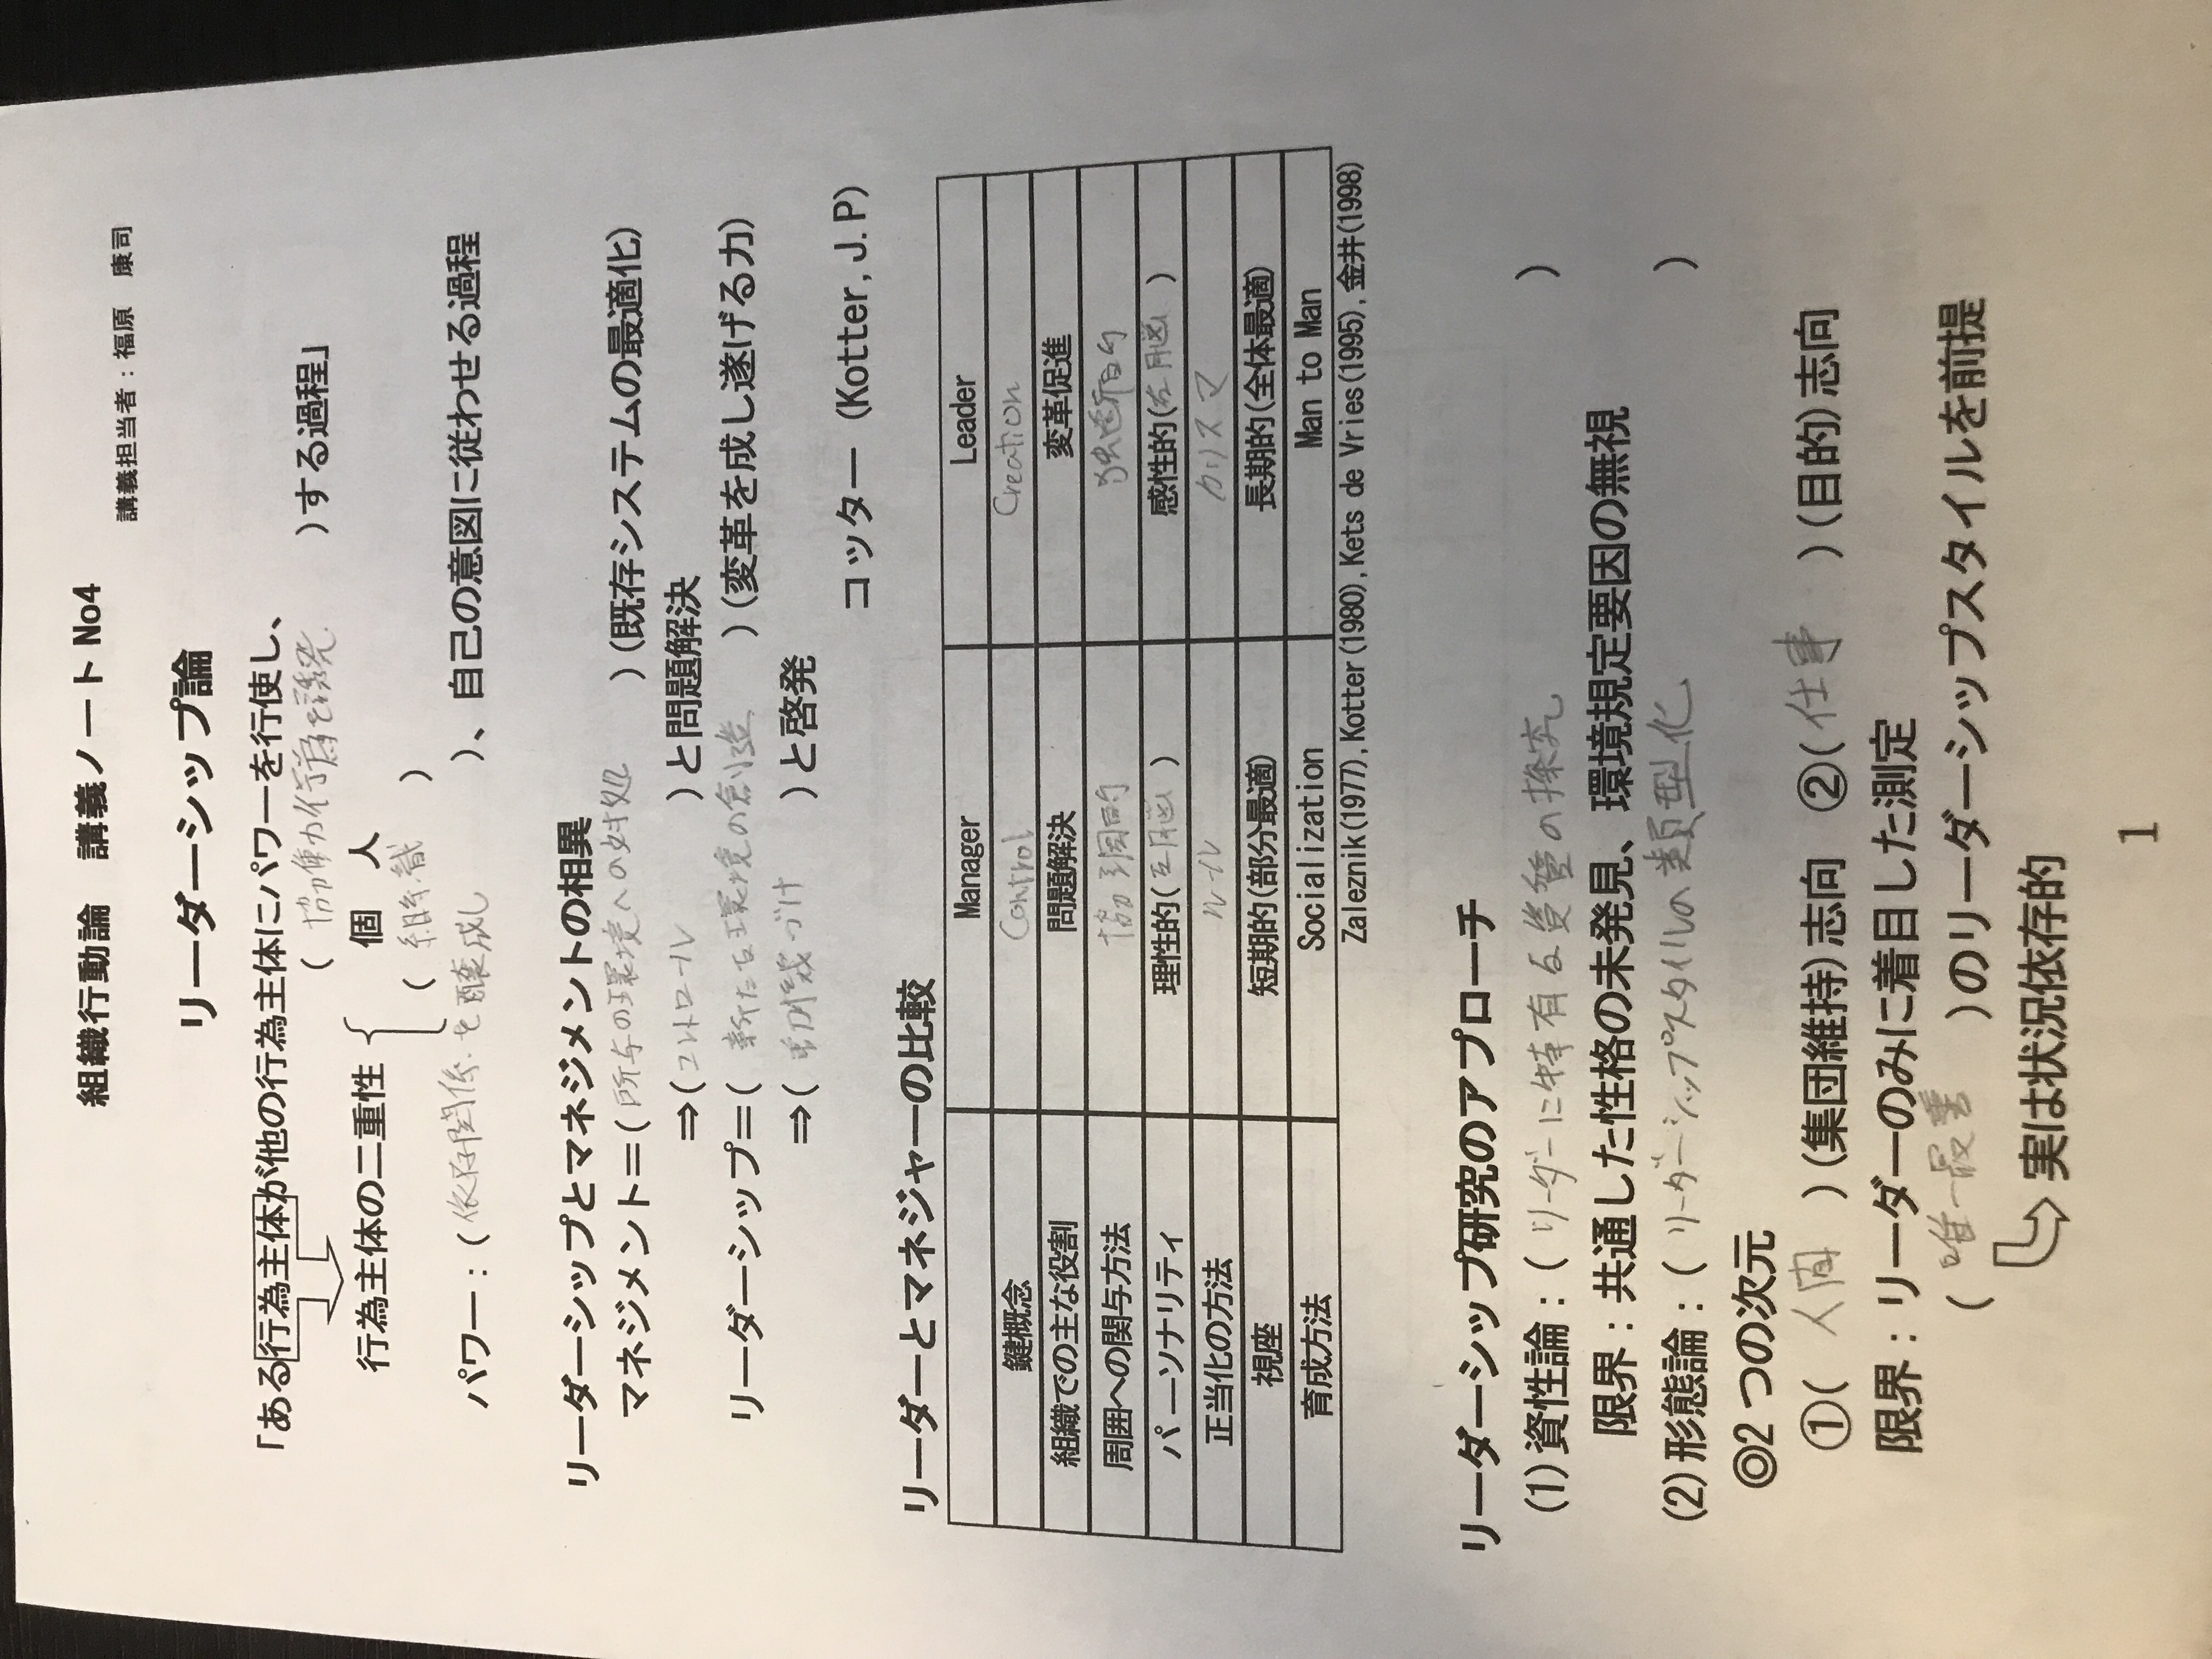 組織行動論　講義ノート No4
講義担当者：福原　康司
リーダーシップ論
「ある行為主体が他の行為主体にパワーを行使し、
(協働行為を誘発)する過程」
行為主体の二重性　個　人
(組織)
パワー：(依存関係を醸成し)、自己の意図に従わせる過程
リーダーシップとマネジメントの相異
マネジメント＝(所与の環境への対処)(既存システムの最適化)
⇒(コントロール)と問題解決
リーダーシップ＝(新たな環境の創造)(変革を成し遂げる力)
⇒(動機づけ)と啓発
コッター (Kotter, J. P)
リーダーとマネジャーの比較
Manager　Leader
鍵概念　Control　Creation
組織での主な役割　問題解決　変革促進
周囲への関与方法　協調的　独断的
パーソナリティ　理性的(左脳)　感性的(右脳)
正当化の方法　ルール　カリスマ
視座　短期的(部分最適)　長期的(全体最適)
育成方法　Socialization　Man to Man
Zaleznik(1977), Kotter(1980), Kets de Vries(1995), 金井(1998)
リーダーシップ研究のアプローチ
(1)資性論：(リーダーに特有な資質の探究)
限界：共通した性格の未発見、環境規定要因の無視
(2)形態論：(リーダーシップスタイルの類型化)
◎2つの次元
①(人間)(集団維持)志向　②(仕事)(目的)志向
限界：リーダーのみに着目した測定
(唯一最善)のリーダーシップスタイルを前提
実は状況依存的
1